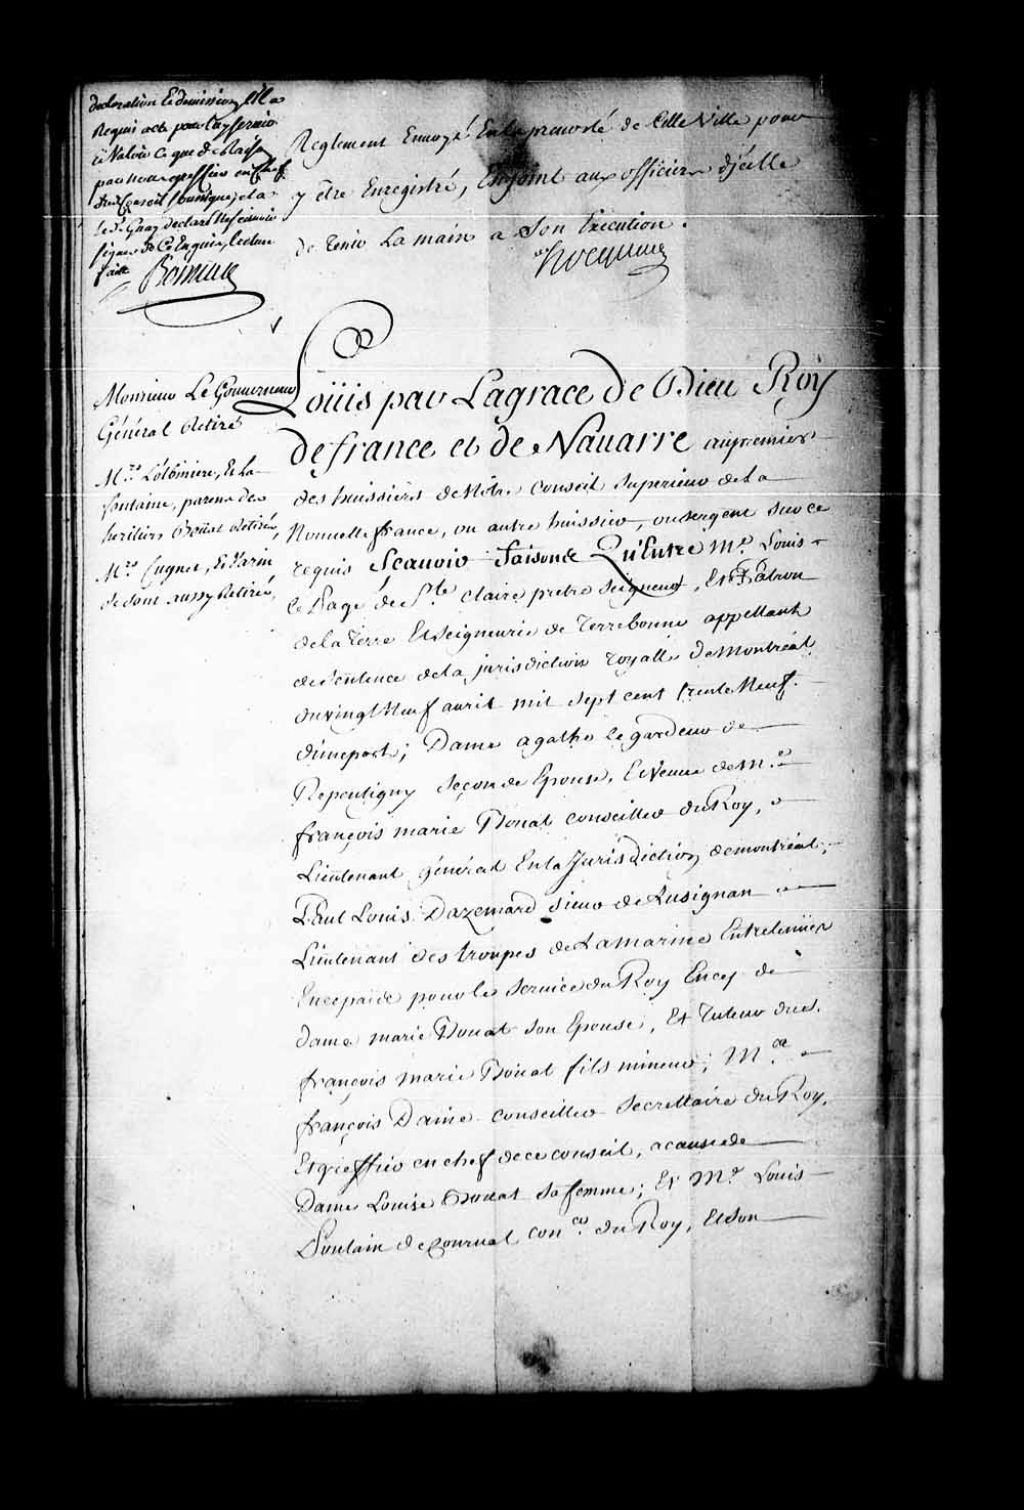 declaration Et demission, Et la
Requis acte pour luy servir
Et Valoir ce que de Raison
par nous greffier en chef
dud Conseil soussigné, et a
led. Sr. Gray declaré ne sçavoir
signer de ce Enquis, lecture
faite Boisseau
Reglement Envoyé En la prevosté de Cette Ville pour
y être Enregistré, Enjoint aux officiers d'jcelle
de tenir La main a son Execution.
hocquart
Monsieur Le Gouverneur
Général Retiré
Mrs. Cugnet, et Varin
de dont aussy Retirés,
fontaine, parens des
heritiers Boüat Retirés,
Loüis par La grace de Dieu Roy
de france et de Navarre au premier
des huissiers de Nôtre Conseil Superieur de La
Nouvelle france, ou autre huissier, ou sergent sur ce
requis Scavoir faisons Qu'Entre Me. Louis
le Page de Ste. claire pretre Seigneur, Et Patron
de la terre Et Seigneurie de Terrebonne appellant
de sentence de la jurisdiction royalle de Montréal
du vingt Neuf avril mil sept cent trente Neuf.
d'une part; Dame agathe le gardeur de
Repentigny seconde Epouse, Et Veuve de Me.
françois marie Boüat conseiller du Roy,
Lieutenant général En la Jurisdiction de montréal,
Paul Louis Dazemard sieur de Lusignan
Lieutenant des troupes de La marine Entretenües
En ce païs pour le service du Roy Encey de
dame marie Boüat son Epouse, Et Tuteur dud.
françois marie Boüat fils mineur; Me.
françois Daine conseiller Secrettaire du Roy,
Et greffier en chef de ce conseil, a cause de
Dame Louise Boüat sa femme; Et Me. Louis
Poulain de Courval conser. du Roy, Et son